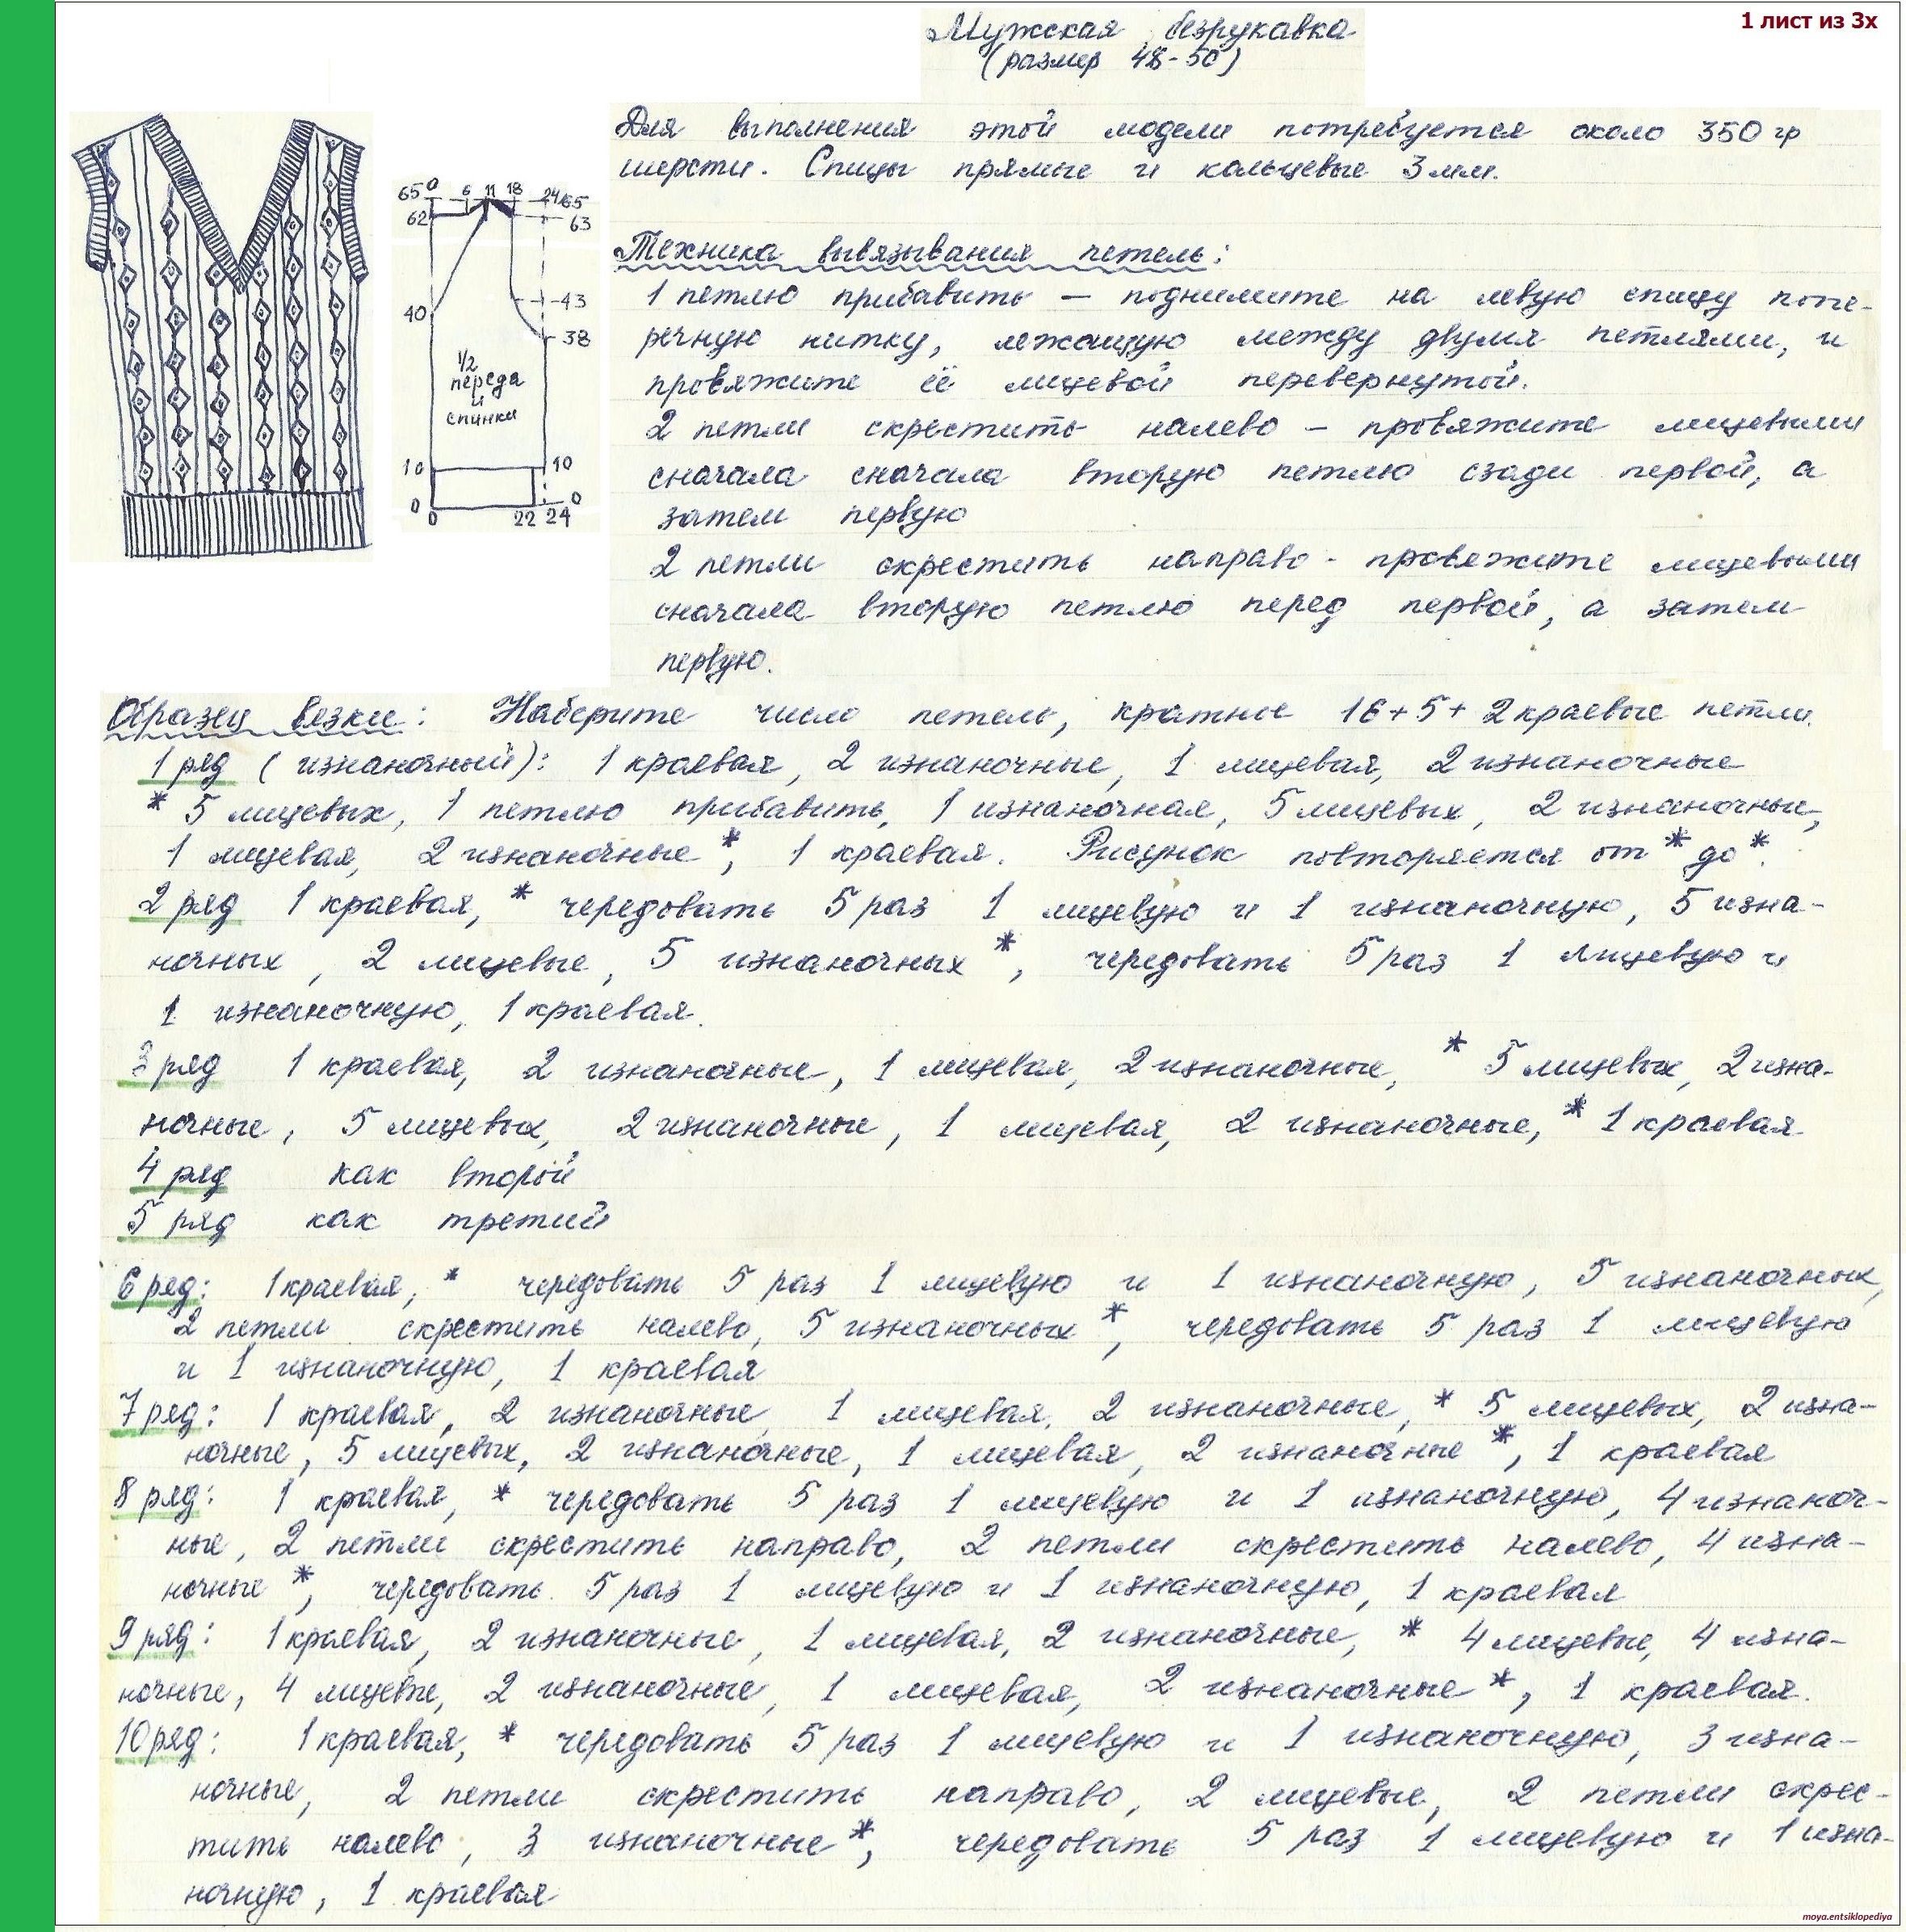 1 лист из 3х
Мужская безрукавка
(размер 48-50)
Для выполнения этой модели потребуется около 350 гр
шерсти. Спицы прямые и кольцевые 3 мм.
65 0 6 11 18 24 65
62 63
43
40
38
1/2
переда
и
спинки
10 10
0 0
0 22 24
Техника вывязывания петель:
1 петлю прибавить — поднимите на левую спицу попе-
речную нитку, лежащую между двумя петлями, и
провяжите её лицевой перевернутой.
2 петли скрестить налево - провяжите лицевыми
сначала сначала вторую петлю сзади первой, а
затем первую
2 петли скрестить направо - провяжите лицевыми
сначала вторую петлю перед первой, а затем
первую.
Образец вязки: Наберите число петель, кратное 16+5+2 краевые петли.
1 ряд (изнаночный): 1 краевая, 2 изнаночные, 1 лицевая, 2 изнаночные
* 5 лицевых, 1 петлю прибавить, 1 изнаночная, 5 лицевых, 2 изнаночные,
1 лицевая, 2 изнаночные *, 1 краевая. Рисунок повторяется от * до *.
2 ряд 1 краевая, * чередовать 5 раз 1 лицевую и 1 изнаночную, 5 изна-
ночных, 2 лицевые, 5 изнаночных *, чередовать 5 раз 1 лицевую и
1 изнаночную, 1 краевая.
3 ряд 1 краевая, 2 изнаночные, 1 лицевая, 2 изнаночные, * 5 лицевых, 2 изна-
ночные, 5 лицевых, 2 изнаночные, 1 лицевая, 2 изнаночные, * 1 краевая
4 ряд как второй
5 ряд как третий
6 ряд: 1 краевая, * чередовать 5 раз 1 лицевую и 1 изнаночную, 5 изнаночных,
2 петли скрестить налево, 5 изнаночных *, чередовать 5 раз 1 лицевую
и 1 изнаночную, 1 краевая
7 ряд: 1 краевая, 2 изнаночные, 1 лицевая, 2 изнаночные, * 5 лицевых, 2 изна-
ночные, 5 лицевых, 2 изнаночные, 1 лицевая, 2 изнаночные *, 1 краевая
8 ряд: 1 краевая, * чередовать 5 раз 1 лицевую и 1 изнаночную, 4 изнаноч-
ные, 2 петли скрестить направо, 2 петли скрестить налево, 4 изна-
ночные *, чередовать 5 раз 1 лицевую и 1 изнаночную, 1 краевая
9 ряд: 1 краевая, 2 изнаночные, 1 лицевая, 2 изнаночные, * 4 лицевые, 4 изна-
ночные, 4 лицевые, 2 изнаночные, 1 лицевая, 2 изнаночные *, 1 краевая.
10 ряд: 1 краевая, * чередовать 5 раз 1 лицевую и 1 изнаночную, 3 изна-
ночные, 2 петли скрестить направо, 2 лицевые, 2 петли скрес-
тить налево, 3 изнаночные *, чередовать 5 раз 1 лицевую и 1 изна-
ночную, 1 краевая
moya.entsiklopediya